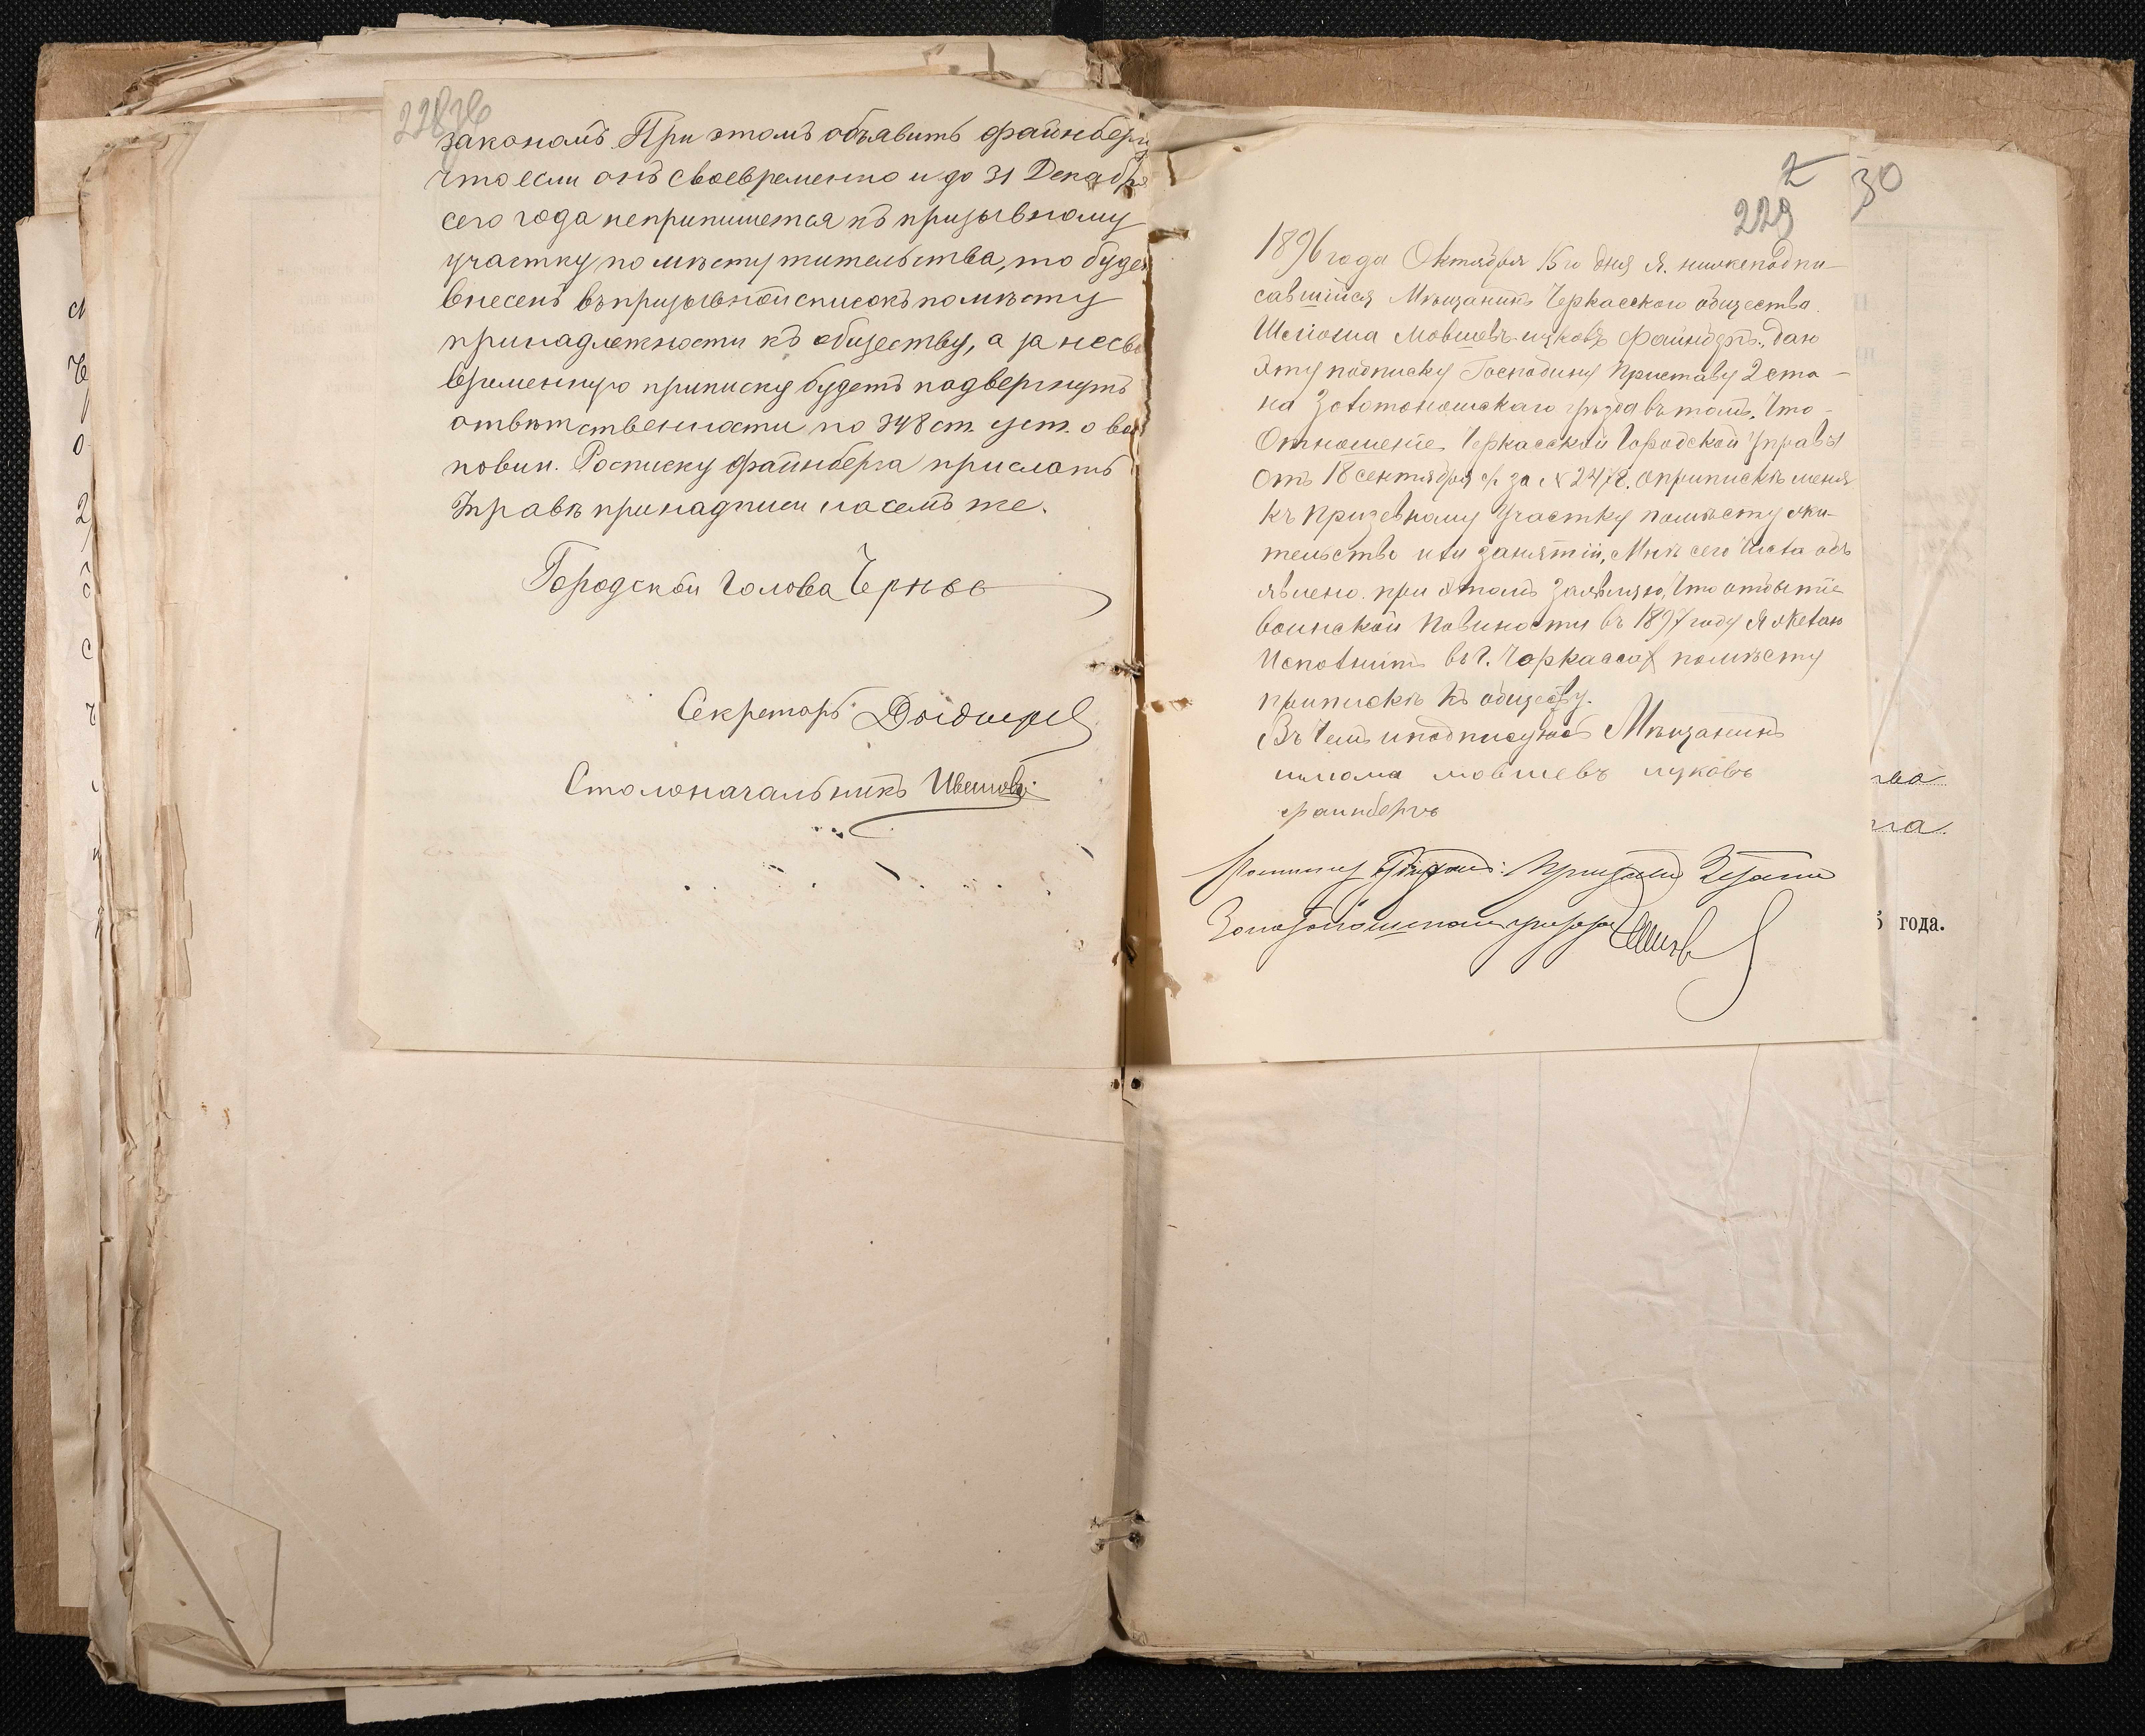 закономъ. При этомъ объявить файнберг
что если онъ своевременно и до 31 Декабря
сего года неприпишется къ призывному
участку по мѣсту жительства, то буде
внесенъ въ призывной списокъ по мѣсту
принадлежности къ обществу, а за несво
временную приписку будетъ подвергнутъ
отвѣтственности по 348 ст. уст. о во
повин. Росписку файнберга прислать
Управѣ принадписи на семъ же.
Городской Голова Черн
Секретарь
Столоначальникъ
2
30
229
1896 года Октября 15 го дня я. нижеподпи-
савшійся Мѣщанинъ Черкасского общества.
Шліома Мовшевъ-ицковъ файнбергъ, даю
эту подписку Господину Приставу 2 ста-
на Золотоношскаго уѣзда въ томъ, что-
Отношеніе Черкасской Городской Управы
отъ 18 сентября с/г за № 2478. оприпискѣ меня
къ призевному участку помѣсту жи-
тельство или занятій, Мнѣ сего числа объ
явлено. при этомъ Заявляю, что отбытіе
воинской повиности въ 1897 году я желаю
Исполнить въ г. Черкассах помѣсту
припискѣ къ обществу.
Въ чемъ иподписуюсь Мѣщанинъ
шлома мовшевъ ицковъ
файнбергъ
Подписку отбиралъ: Приставъ 2 стана
Золотоношскаго уѣзда
ва
га.
года.